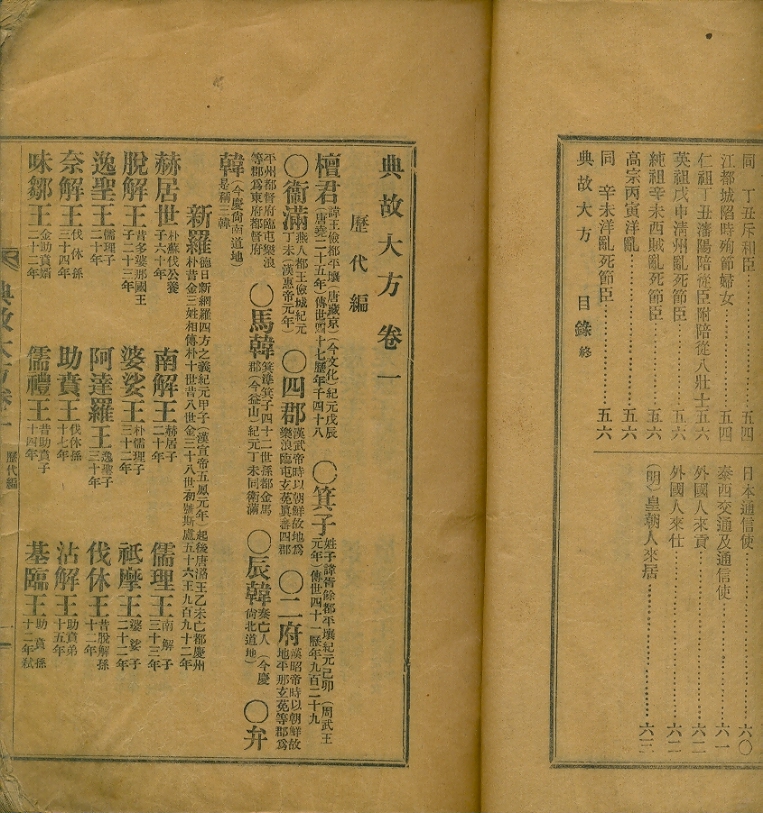 同 丁丑斥和臣……五四
江都城陷時殉節婦女……五四
仁祖丁丑瀋陽陪從臣附陪從八壯士 五六
英祖戊申清州亂死節臣……五六
純祖辛未西賊亂死節臣……五六
高宗丙寅洋亂……五六
同 辛未洋亂死節臣……五六
典故大方 目錄 終
日本通信使……六〇
泰西交通及通信使……六一
外國人來貢……六二
外國人來仕……六二
(明)皇朝人來居……六三
典故大方卷一
歷代編
檀君 諱王儉都平壤(唐藏京)(今文化)紀元戊辰(唐堯二十五年)傳世四十七歷年千四十八 〇箕子 姓子諱胥餘都平壤紀元己卯(周武王元年)傳世四十一歷年九百二十九
〇衞滿 燕人都王儉城紀元丁未(漢惠帝元年) 〇四郡 漢武帝時以朝鮮故地爲樂浪臨屯玄菟眞番四郡 〇二府 漢昭帝時以朝鮮故地平那玄菟等郡爲
平州都督府臨屯樂浪等郡爲東府都督府 〇馬韓 箕準箕子四十二世孫都金馬郡(今益山)紀元丁未同衛滿 〇辰韓 秦亡人(今慶尙北道地) 〇弁
韓 (今慶尙南道地)是稱三韓
新羅 德日新網羅四方之義紀元甲子(漢宣帝五鳳元年)起後唐潞王乙未亡都慶州朴昔金三姓相傳朴十世昔八世金三十八世初號斯盧五十六王九百九十二年
赫居世 朴蘇伐公養子六十年 南解王 赫居子二十年 儒理王 南解子三十三年
脫解王 昔多婆那國王子二十三年 婆娑王 朴儒理子三十二年 祗摩王 婆娑子二十二年
逸聖王 儒理子二十年 阿達羅王 逸聖子三十年 伐休王 昔脫解孫十二年
奈解王 伐休孫三十四年 助賁王 伐休孫十七年 沾解王 助賁弟十五年
味鄒王 金助賁婿二十二年 儒禮王 昔助賁子十四年 基臨王 助賁孫十二年弑
典故大方卷一 歷代編 一